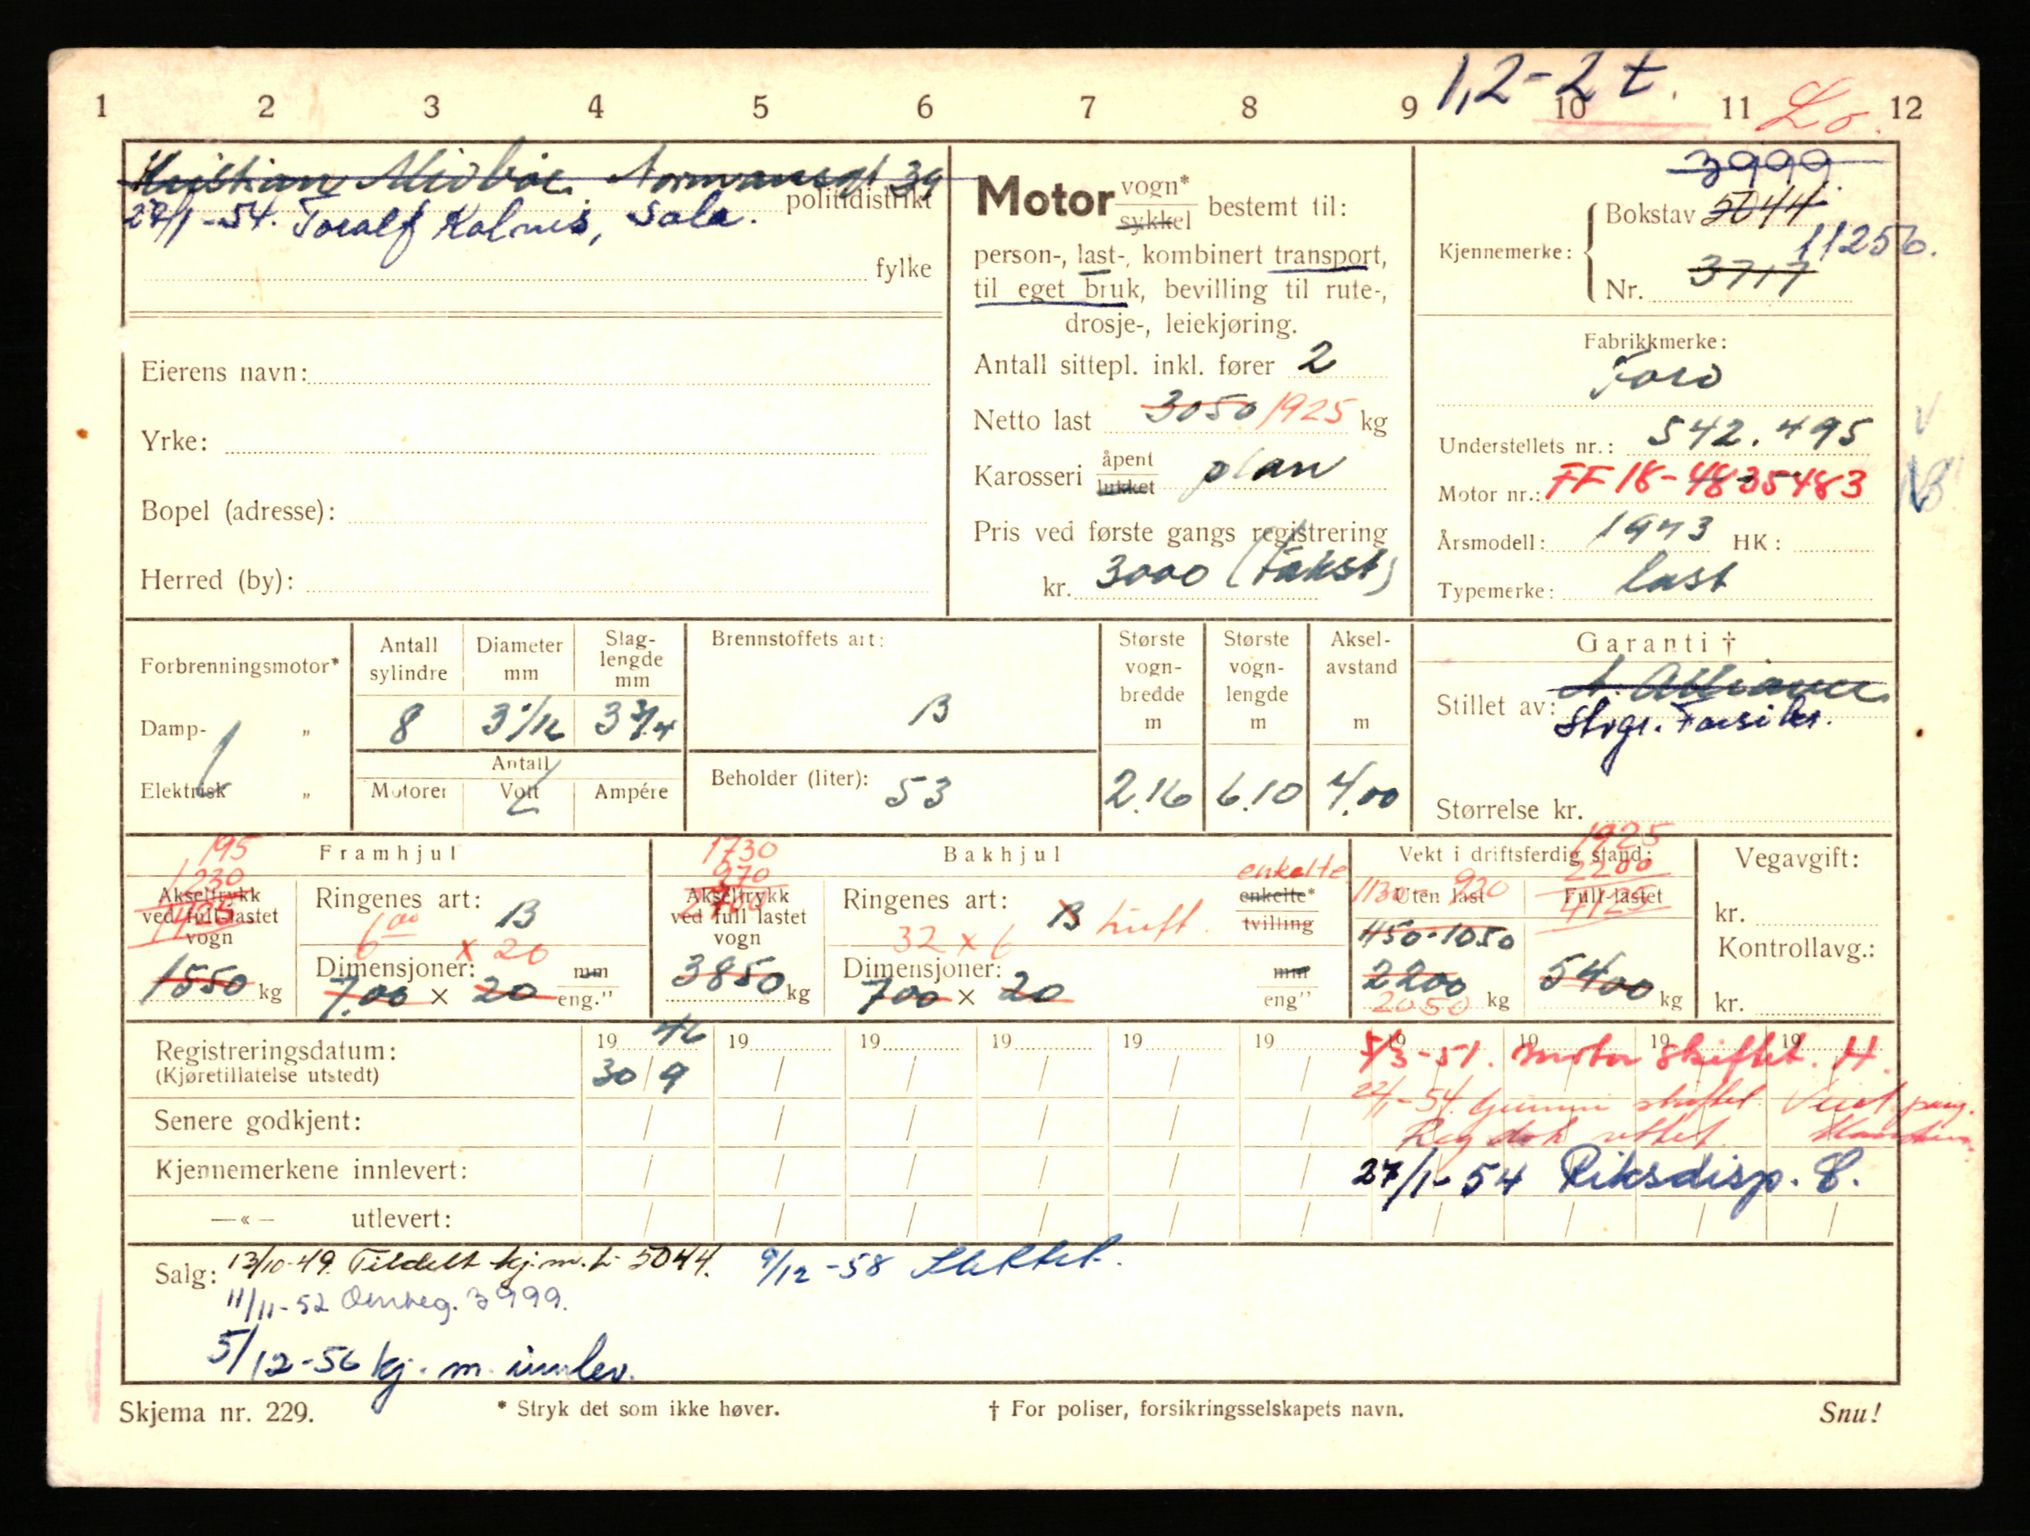 1 2 3 4 5 6 7 8 9 10 11 12
1,2-2 t.
Kristian Midbøe Normansgt 39
politidistrikt
27/1-54. Toralf Kolnes, Sola.
fylke
Eierens navn:
Yrke:
Bopel (adresse):
Herred (by):
Motor vogn* sykkel bestemt til:
person-, last-, kombinert transport,
til eget bruk, bevilling til rute-,
drosje-, leiekjøring.
Antall sittepl. inkl. fører 2
Netto last 3050 1925 kg
Karosseri åpent lukket plan
Pris ved første gangs registrering
kr. 3000 (takst)
3999
Kjennemerke: Bokstav 5044
11256.
Nr. 3717
Fabrikkmerke:
Ford
Understellets nr.: 542.495
Motor nr.: FF 18-4835483
Årsmodell: 1943 HK:
Typemerke: last
Forbrenningsmotor*
Damp- „
Elektrisk „
Antall sylindre
Diameter mm
Slag-lengde mm
8 3 1/16 3 3/4
Antall
Motorer Volt Ampére
Brennstoffets art:
B
Beholder (liter): 53
Største vogn-bredde m
Største vogn-lengde m
Aksel-avstand m
2.16 6.10 4.00
Garanti †
Stillet av: A. Alliance
Stvgr. Forsikr.
Størrelse kr.
Framhjul
195
1230
1425
Akseltrykk ved full lastet vogn
1550 kg
Ringenes art: B
6 00 x 20
Dimensjoner: mm
7.00 × 20 eng."
Bakhjul
1730
970
2700
Akseltrykk ved full lastet vogn
3850 kg
Ringenes art: B luft.
enkelte
enkelte*
tvilling
32 x 6
Dimensjoner: mm
700 × 20 eng"
Vekt i driftsferdig stand:
1925
2200
4125
1130-920
Uten last Full-lastet
1150-1050
2200
2050 kg
5400 kg
Vegavgift:
kr.
Kontrollavg.:
kr.
Registreringsdatum:
(Kjøretillatelse utstedt)
19 46 19 19 19 19 19 19 19 19 19
30/9
5/3-51. Motor skiftet. H.
22/1-54. Gummi skiftet.
Senere godkjent:
Reg dok rettet.
Kjennemerkene innlevert:
27/1-54 Riksdisp. E.
—«— utlevert:
Salg: 13/10-49. Tildelt kj.m. L-5044. 9/12-58 Slettet.
11/11-52 Omreg. 3999.
5/12-56 kj. m. innlev.
Skjema nr. 229.
* Stryk det som ikke høver.
† For poliser, forsikringsselskapets navn.
Snu!